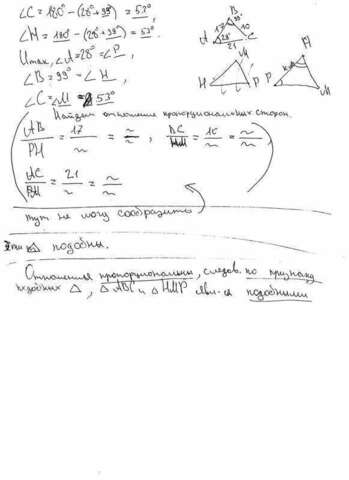 ∠C = 180° − (28° + 99°) = 53°;
∠H = 180 − (28° + 99°) = 53°.
Итак, ∠A = 28° = ∠P,
∠B = 99° = ∠H,
∠C = ∠M = 53°
Найдем отношение пропорциональных сторон.
AB/PH = 17/~ = ~/~ , BC/HM = 10/~ = ~/~ ,
AC/PM = 21/~ = ~/~
тут не могу сообразить
Эти △ подобны.
Отношения пропорциональны, следов. по признаку
подобных △, △ABC и △HMP явл-ся подобными
B
17
99°
10
A
28°
21
C
M
H
P
H
P
M